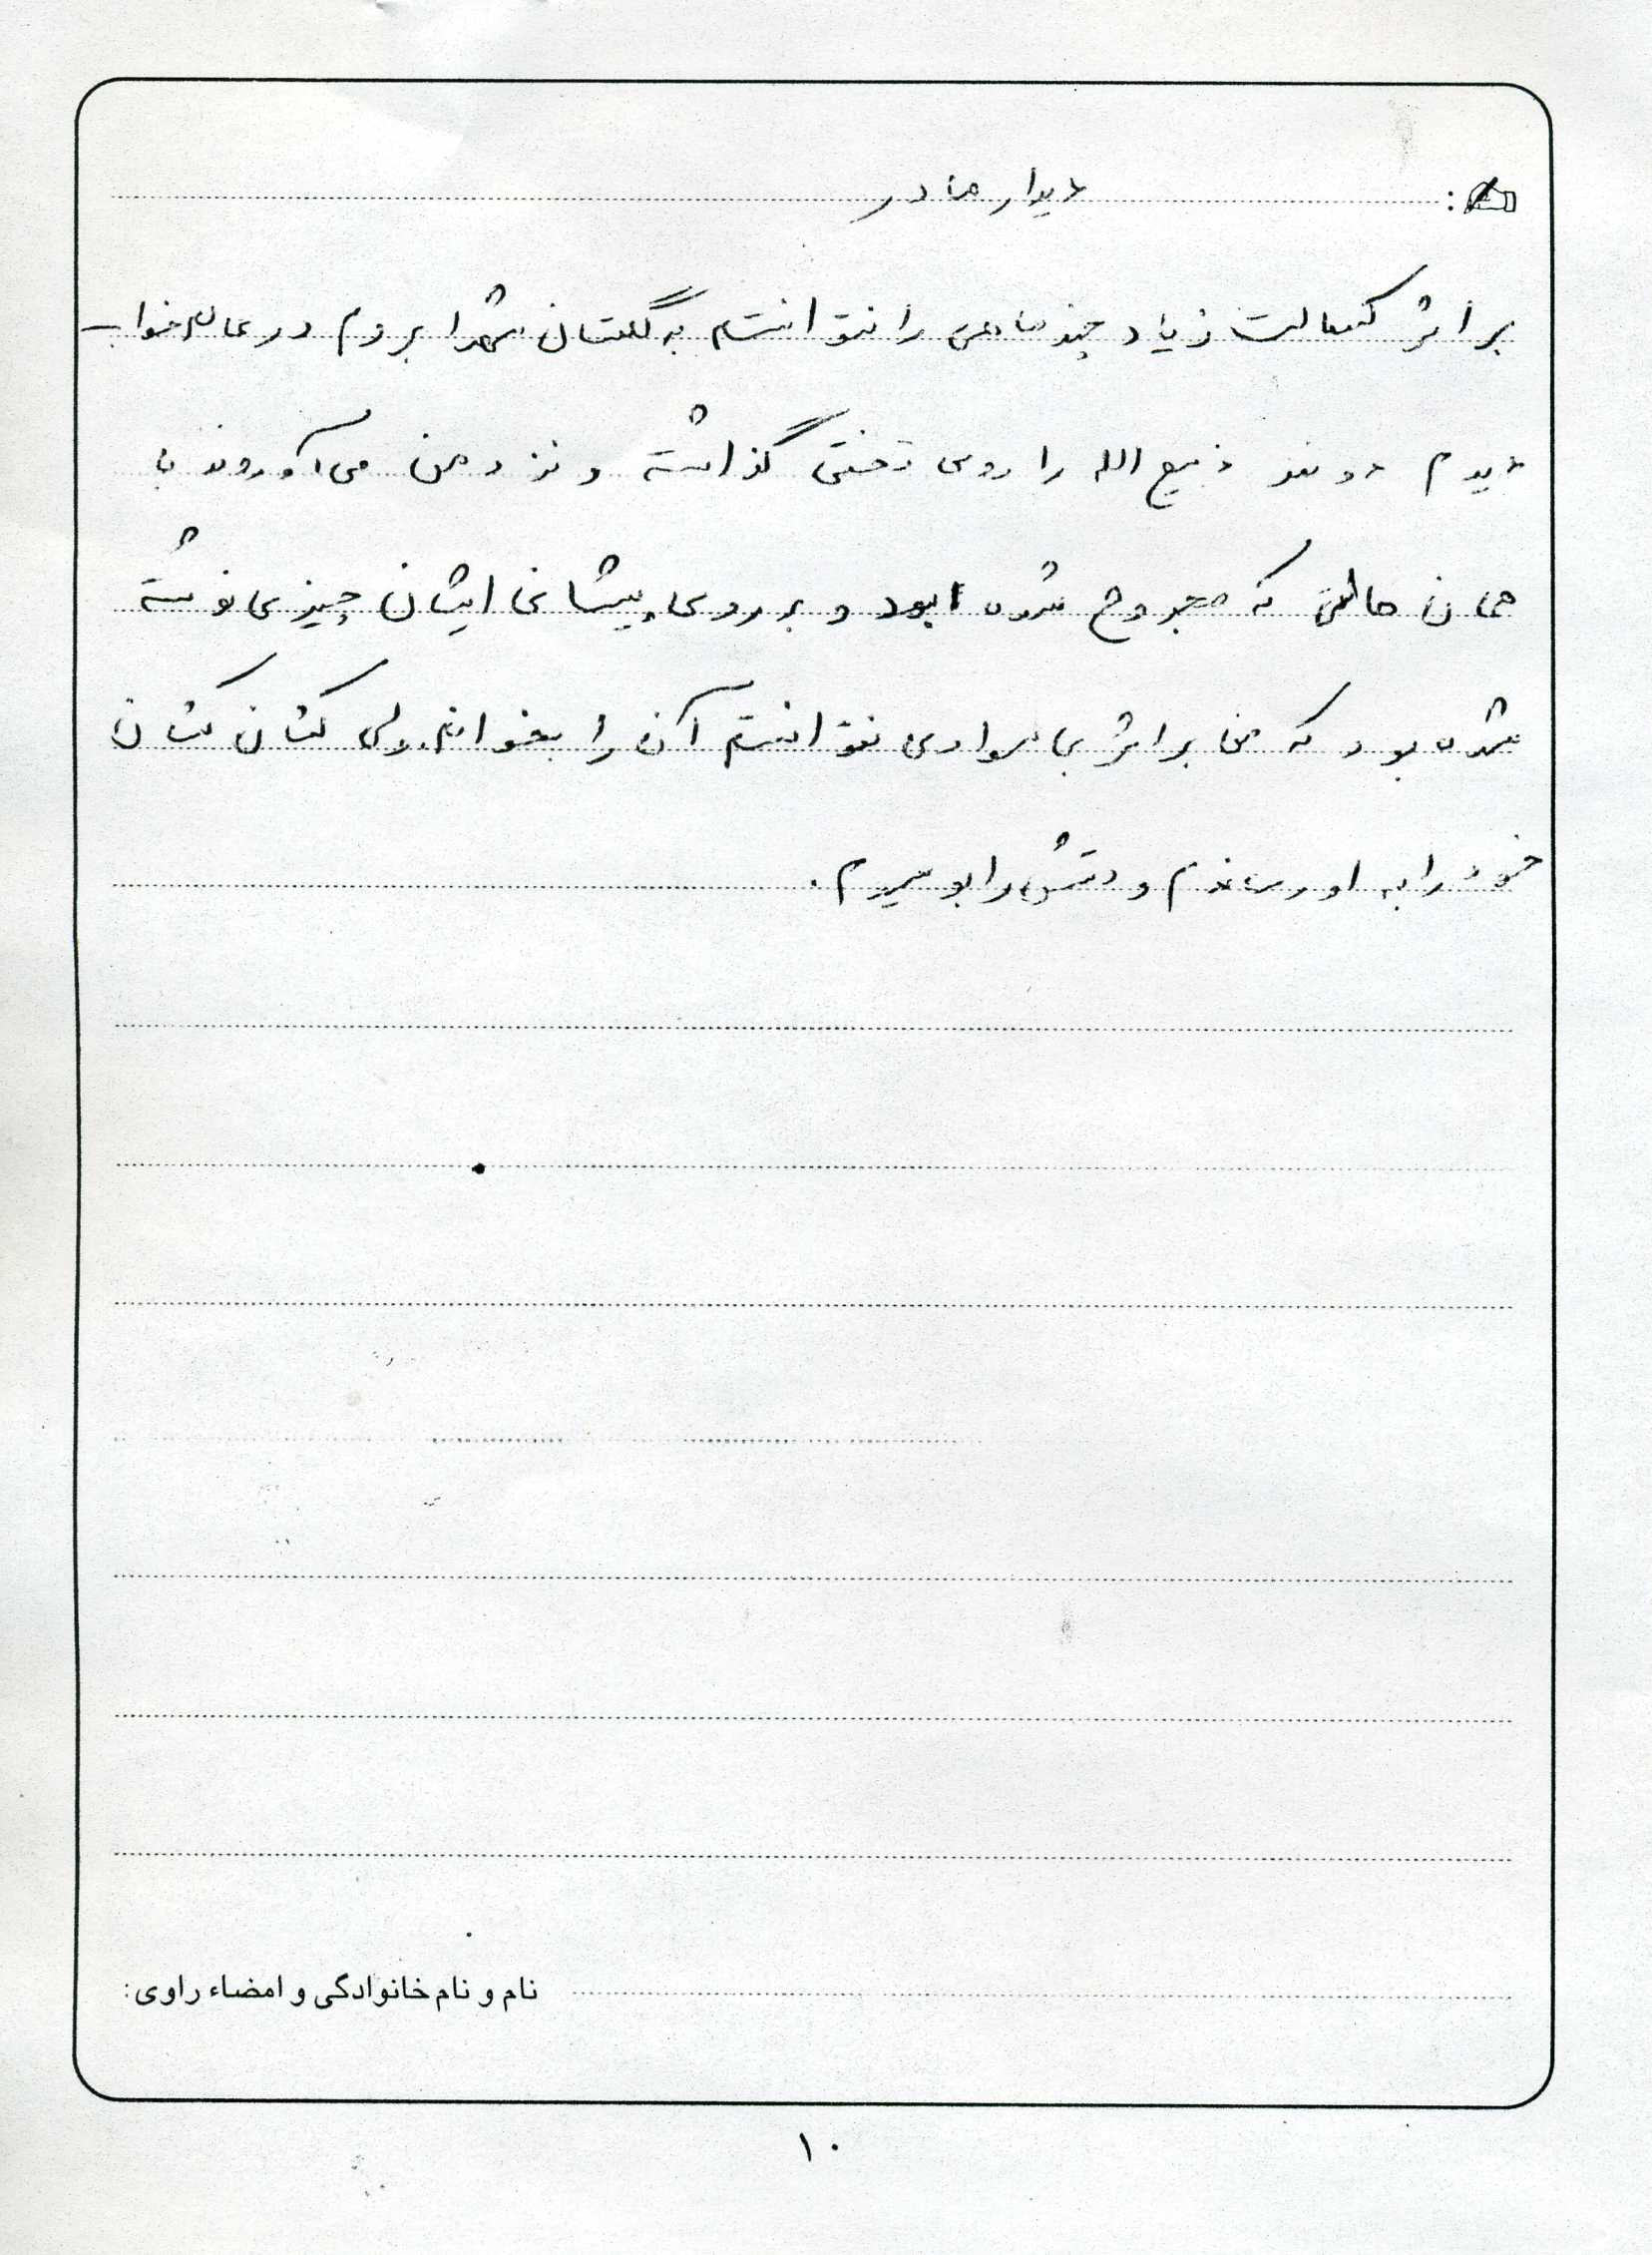 دیدار مادر
بر اثر کسالت زیاد چند ماهی را نتوانستم به گلستان شهدا بروم در عالم خواب
دیدم دو نفر ذبیح الله را روی تختی گذاشته و نزد من می آوردند با
همان حالتی که مجروح شده بود و بر روی پیشانی ایشان چیزی نوشته
شده بود که من بر اثر بی سوادی نتوانستم آن را بخوانم ولی کشان کشان
خود را به او رساندم و دستش را بوسیدم.
نام و نام خانوادگی و امضاء راوی:
۱۰